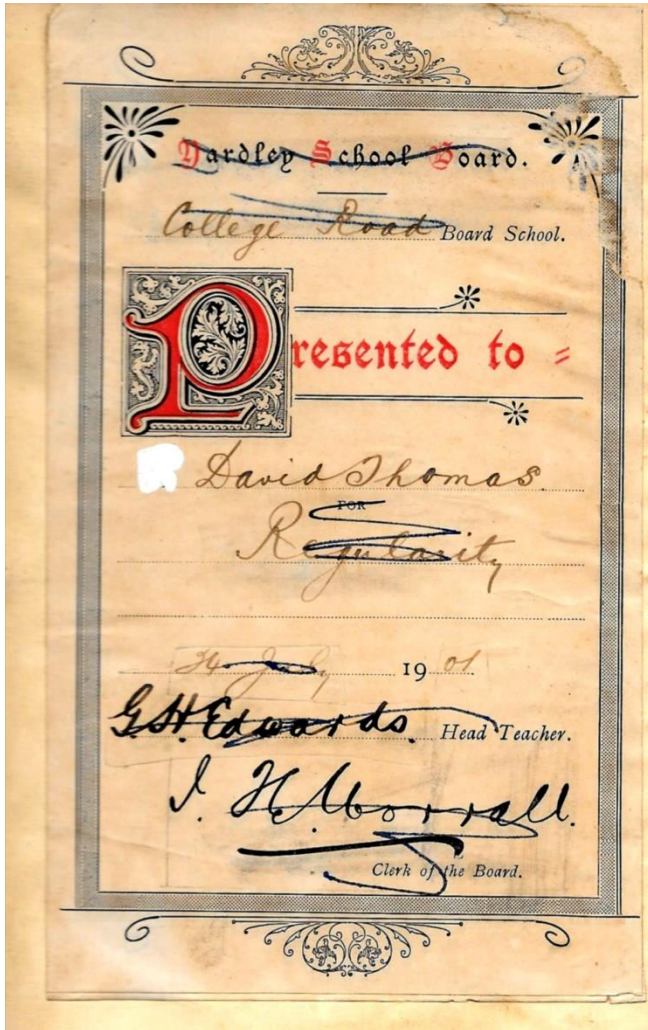 Yardley School Board.
College Road Board School.
Presented to =
David Thomas.
FOR
Regularity
July 1901
G. H. Edwards. Head Teacher.
J. H. Morrall.
Clerk of the Board.